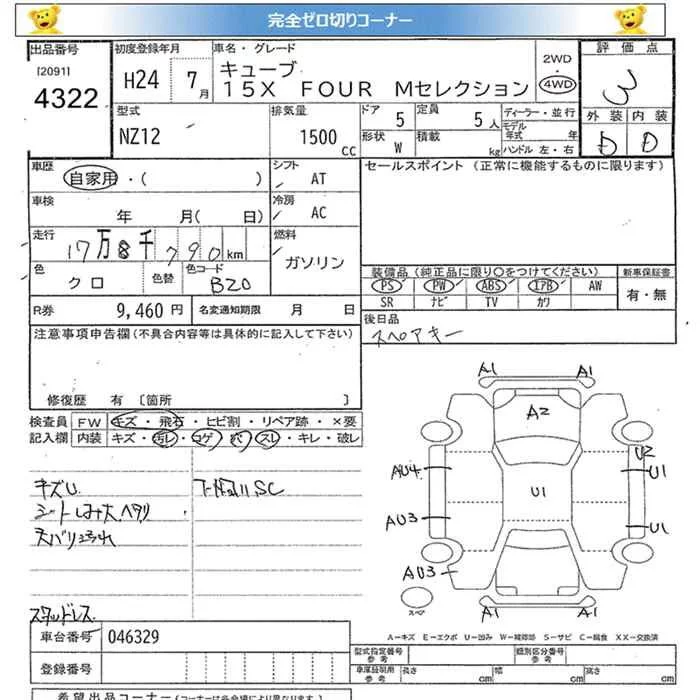 完全ゼロ切りコーナー
出品番号
[2091]
4322
初度登録年月
H24 7月
車名・グレード
キューブ
15X FOUR Mセレクション
2WD
4WD
評価点
3
外装 内装
D D
型式
NZ12
排気量
1500 CC
ドア 5
定員 5人
形状 W
積載 kg
ディーラー・並行
モデル年式 年
ハンドル 左・右
車歴
自家用・( )
シフト
AT
セールスポイント (正常に機能するものに限ります)
車検
年 月( 日)
冷房
AC
走行
17万8千790km
燃料
ガソリン
色
クロ
色替
色コード
B20
装備品 (純正品に限り○をつけてください)
新車保証書
PS PW ABS エアB AW
SR ナビ TV カワ
有・無
R券 9,460 円
名変通知期限 月 日
後日品
スペアキー
注意事項申告欄 (不具合内容等は具体的に記入して下さい)
修復歴 有 〔箇所 〕
検査員
記入欄
FW キズ・飛石・ヒビ割・リペア跡・×要
内装 キズ・汚レ・コゲ・穴・スレ・キレ・破レ
キズU
シートしみ大、ヘタリ
天バリ汚れ
スタッドレス
SC
A1 A1
A2
U2
AU4 U1
U1
AU3 U1
AU3
A1 A1
スペア
A−キズ E−エクボ U−凹み W−補修跡 S−サビ C−腐食 XX−交換済
車台番号 046329
登録番号
型式指定番号
参考
類別区分番号
参考
車庫証明用
参考
長さ cm
幅 cm
高さ cm
希望出品コーナー